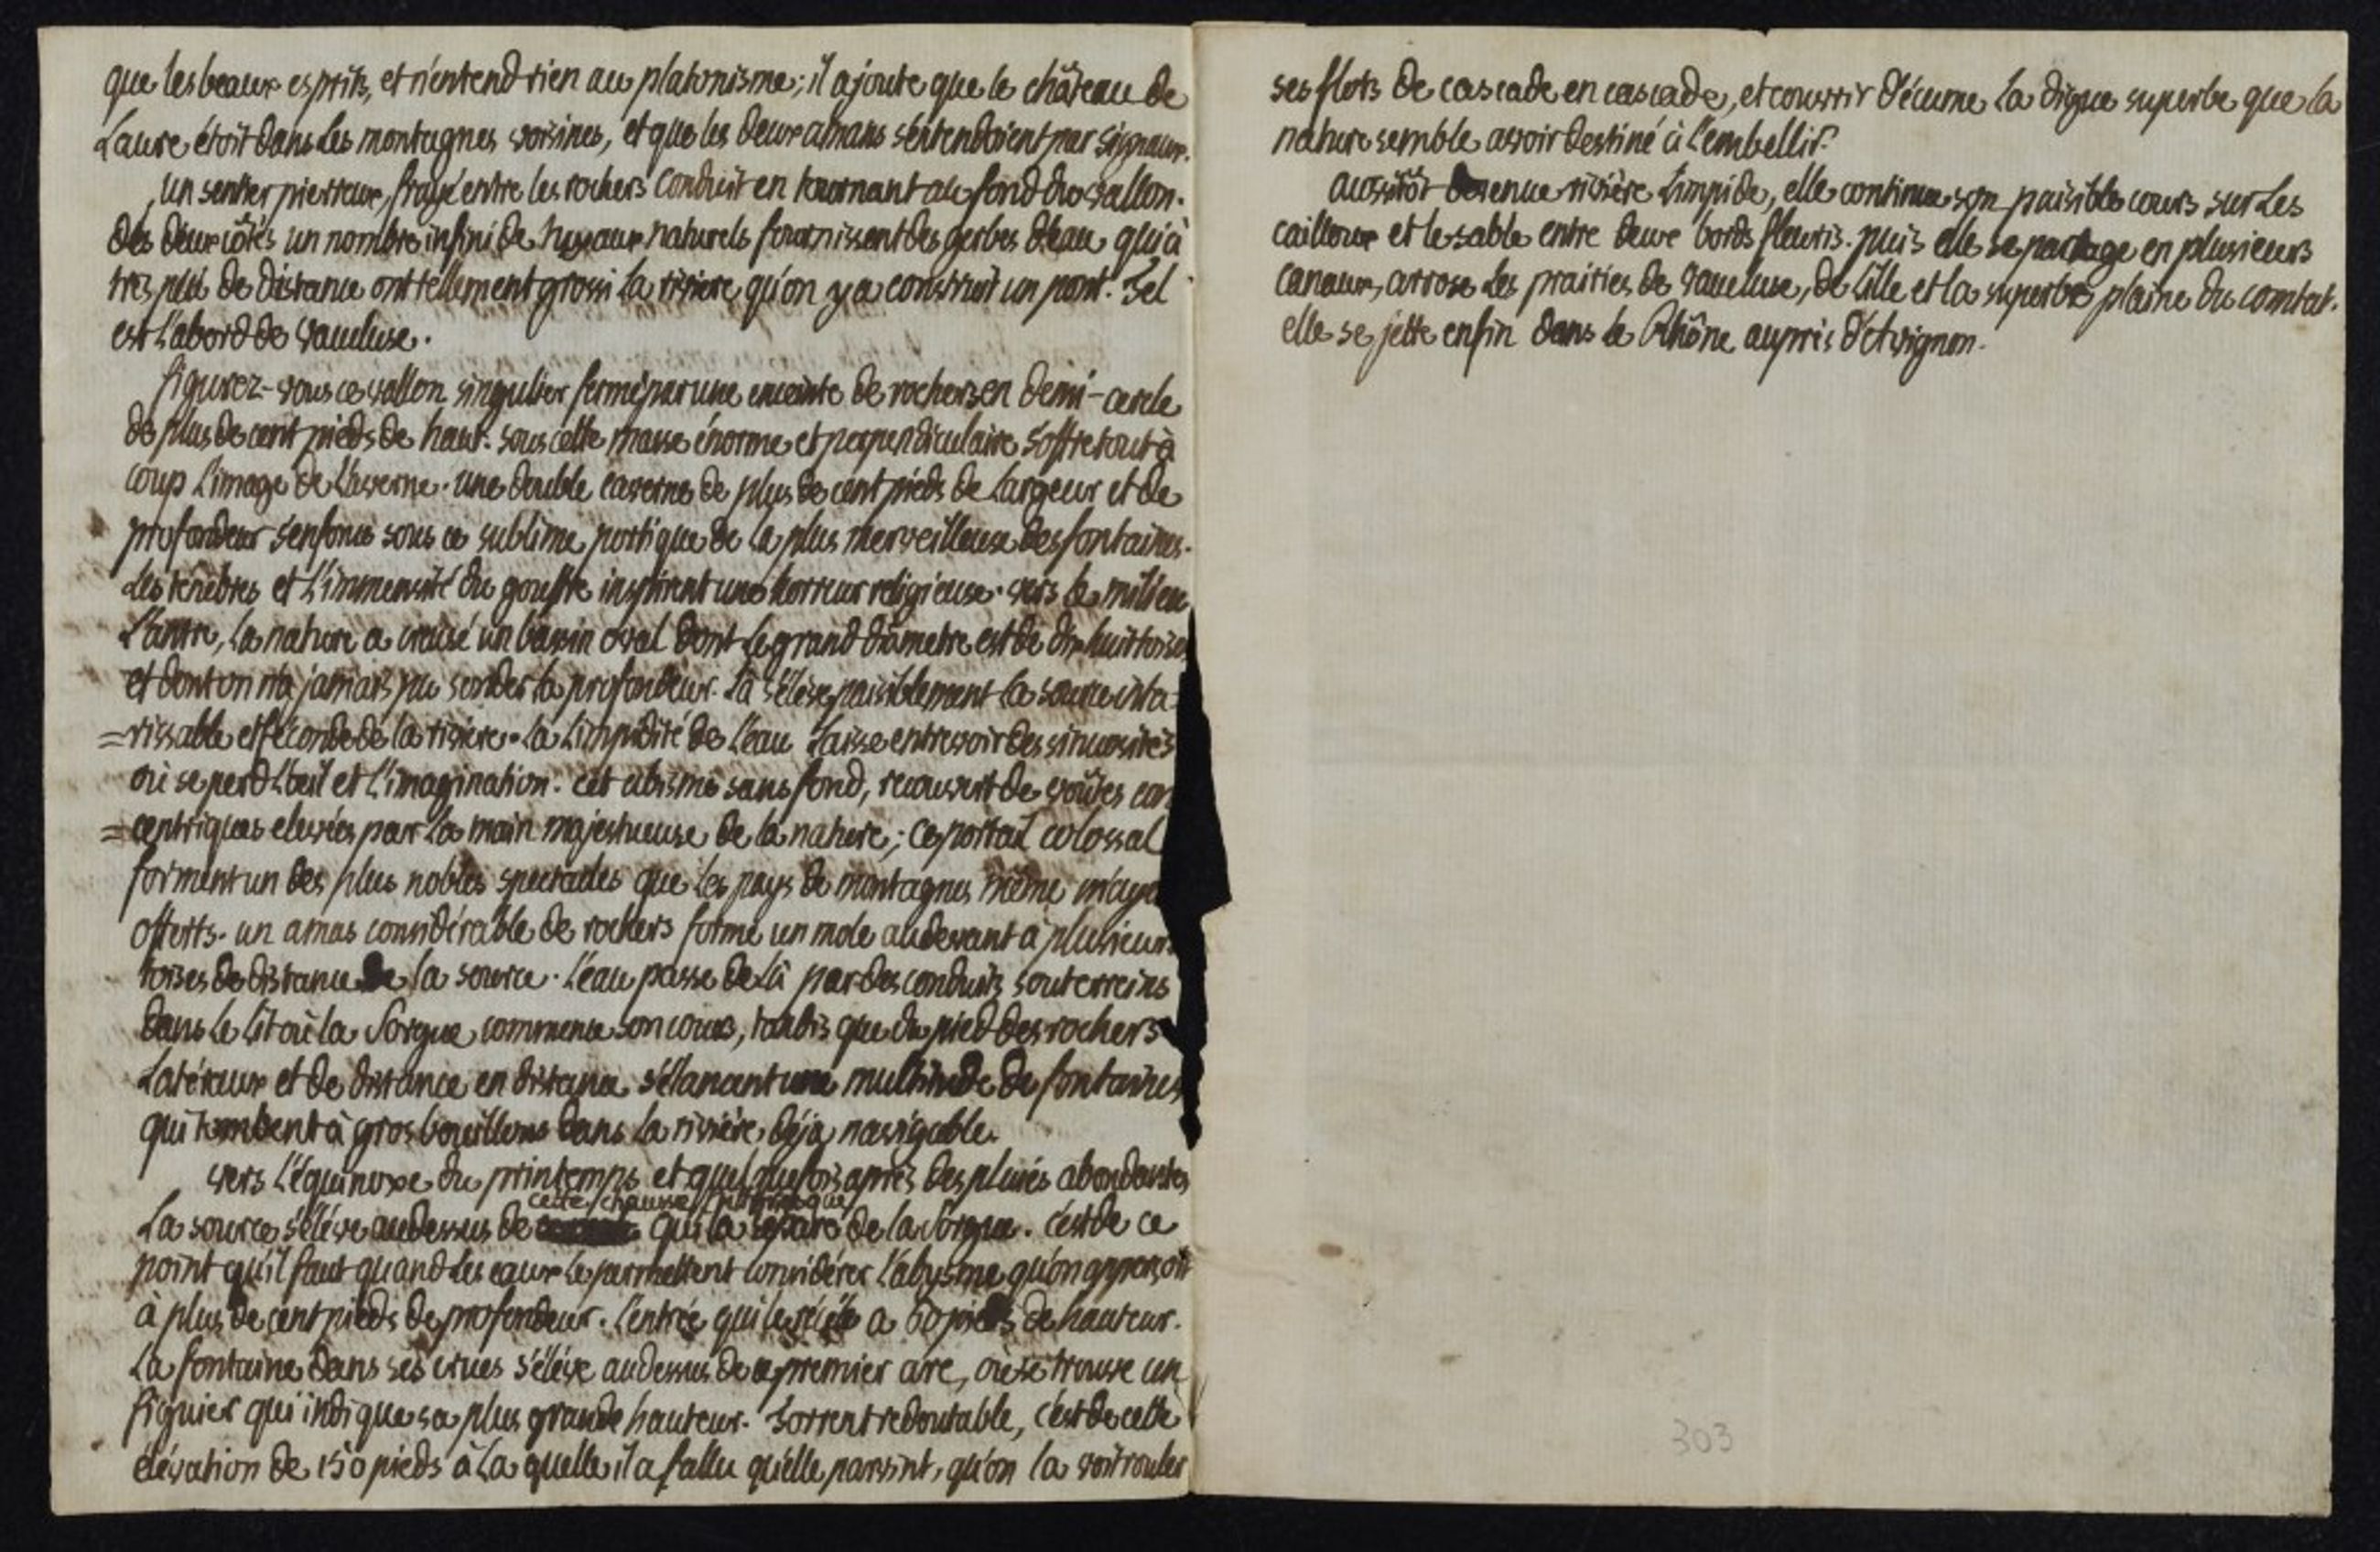 que les beaux esprits, et n'entend rien au platonisme; il ajoute que le château de
Laure étoit dans les montagnes voisines, et que les deux amans s'entendoient par signaux.
un sentier pierreux, frayé entre les rochers conduit en tournant au fond du vallon.
des deux côtés un nombre infini de tuyaux naturels fournissent des gerbes d'eau qui à
très peu de distance ont tellement grossi la riviere qu'on y a construit un pont. Tel
est l'abord de Vaucluse.
figurez-vous ce vallon singulier fermé par une enceinte de rochers en demi-cercle
de plus de cent pieds de haut. sous cette masse énorme et perpendiculaire s'offre tout à
coup l'image de l'averne. une double caverne de plus de cent pieds de largeur et de
profondeur s'enfonce sous ce sublime portique de la plus merveilleuse des fontaines.
Les ténèbres et l'immensité du gouffre inspirent une horreur religieuse. vers le milieu
l'antre, la nature a creusé un bassin oval dont le grand diametre est de dix huit toises
et dont on n'a jamais pu sonder la profondeur. là s'élève paisiblement la source inta-
=rissable et féconde de la riviere. la limpidité de l'eau laisse entrevoir des sinuosités
où se perd l'œil et l'imagination. cet abisme sans fond, recouvert de voûtes con
=centriques elevées par la main majestueuse de la nature; ce portail colossal
forment un des plus nobles spectacles que les pays de montagnes même m'aye
offerts. un amas considérable de rochers forme un mole au devant à plusieurs
toises de distance de la source. l'eau passe de là par des conduits souterreins
dans le lit où la Sorgue commence son cours, tandis que du pied des rochers
latéraux et de distance en distance s'élancent une multitude de fontaines
qui tombent à gros bouillons dans la rivière déja navigable.
vers l'équinoxe du printemps et quelquefois après des pluies abondantes
cette chaussée
La source s'élève au dessus de qui la sépare de la Sorgue. c'est de ce
point qu'il faut quand les eaux le permettent considérer l'abysme qu'on apperçoit
à plus de cent pieds de profondeur. l'entrée qui le récèle a 60 pieds de hauteur.
La fontaine dans ses crues s'élève au dessus de ce premier arc, où se trouve un
figuier qui indique sa plus grande hauteur. Torrent redoutable, c'est de cette
élévation de 150 pieds à la quelle il a fallu qu'elle parvint, qu'on la voit rouler
ses flots de cascade en cascade, et couvrir d'écume la digue superbe que la
nature semble avoir destiné à l'embellir.
aussitôt devenue rivière limpide, elle continue son paisible cours sur les
cailloux et le sable entre deux bords fleuris. puis elle se partage en plusieurs
canaux, arrose les prairies de Vaucluse, de Lille et la superbe plaine du comtat.
elle se jette enfin dans le Rhône auprès d'Avignon.
303